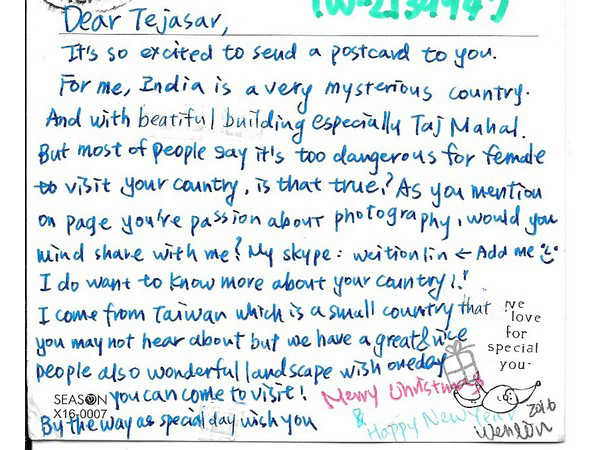 Dear Tejasar,
It's so excited to send a postcard to you.
For me, India is a very mysterious country.
And with beatiful building especially Taj Mahal.
But most of people say it's too dangerous for female
to visit your country, is that true? As you mention
on page you're passion about photography, would you
mind share with me? My skype: weitionlin ← Add me
I do want to know more about your country!
I come from Taiwan which is a small country that
you may not hear about but we have a great & nice
people also wonderful landscape wish oneday
you can come to visit!
By the way as special day wish you
Merry Christmas
& Happy New Year
2016
love
for
special
you
SEASON
X16-0007